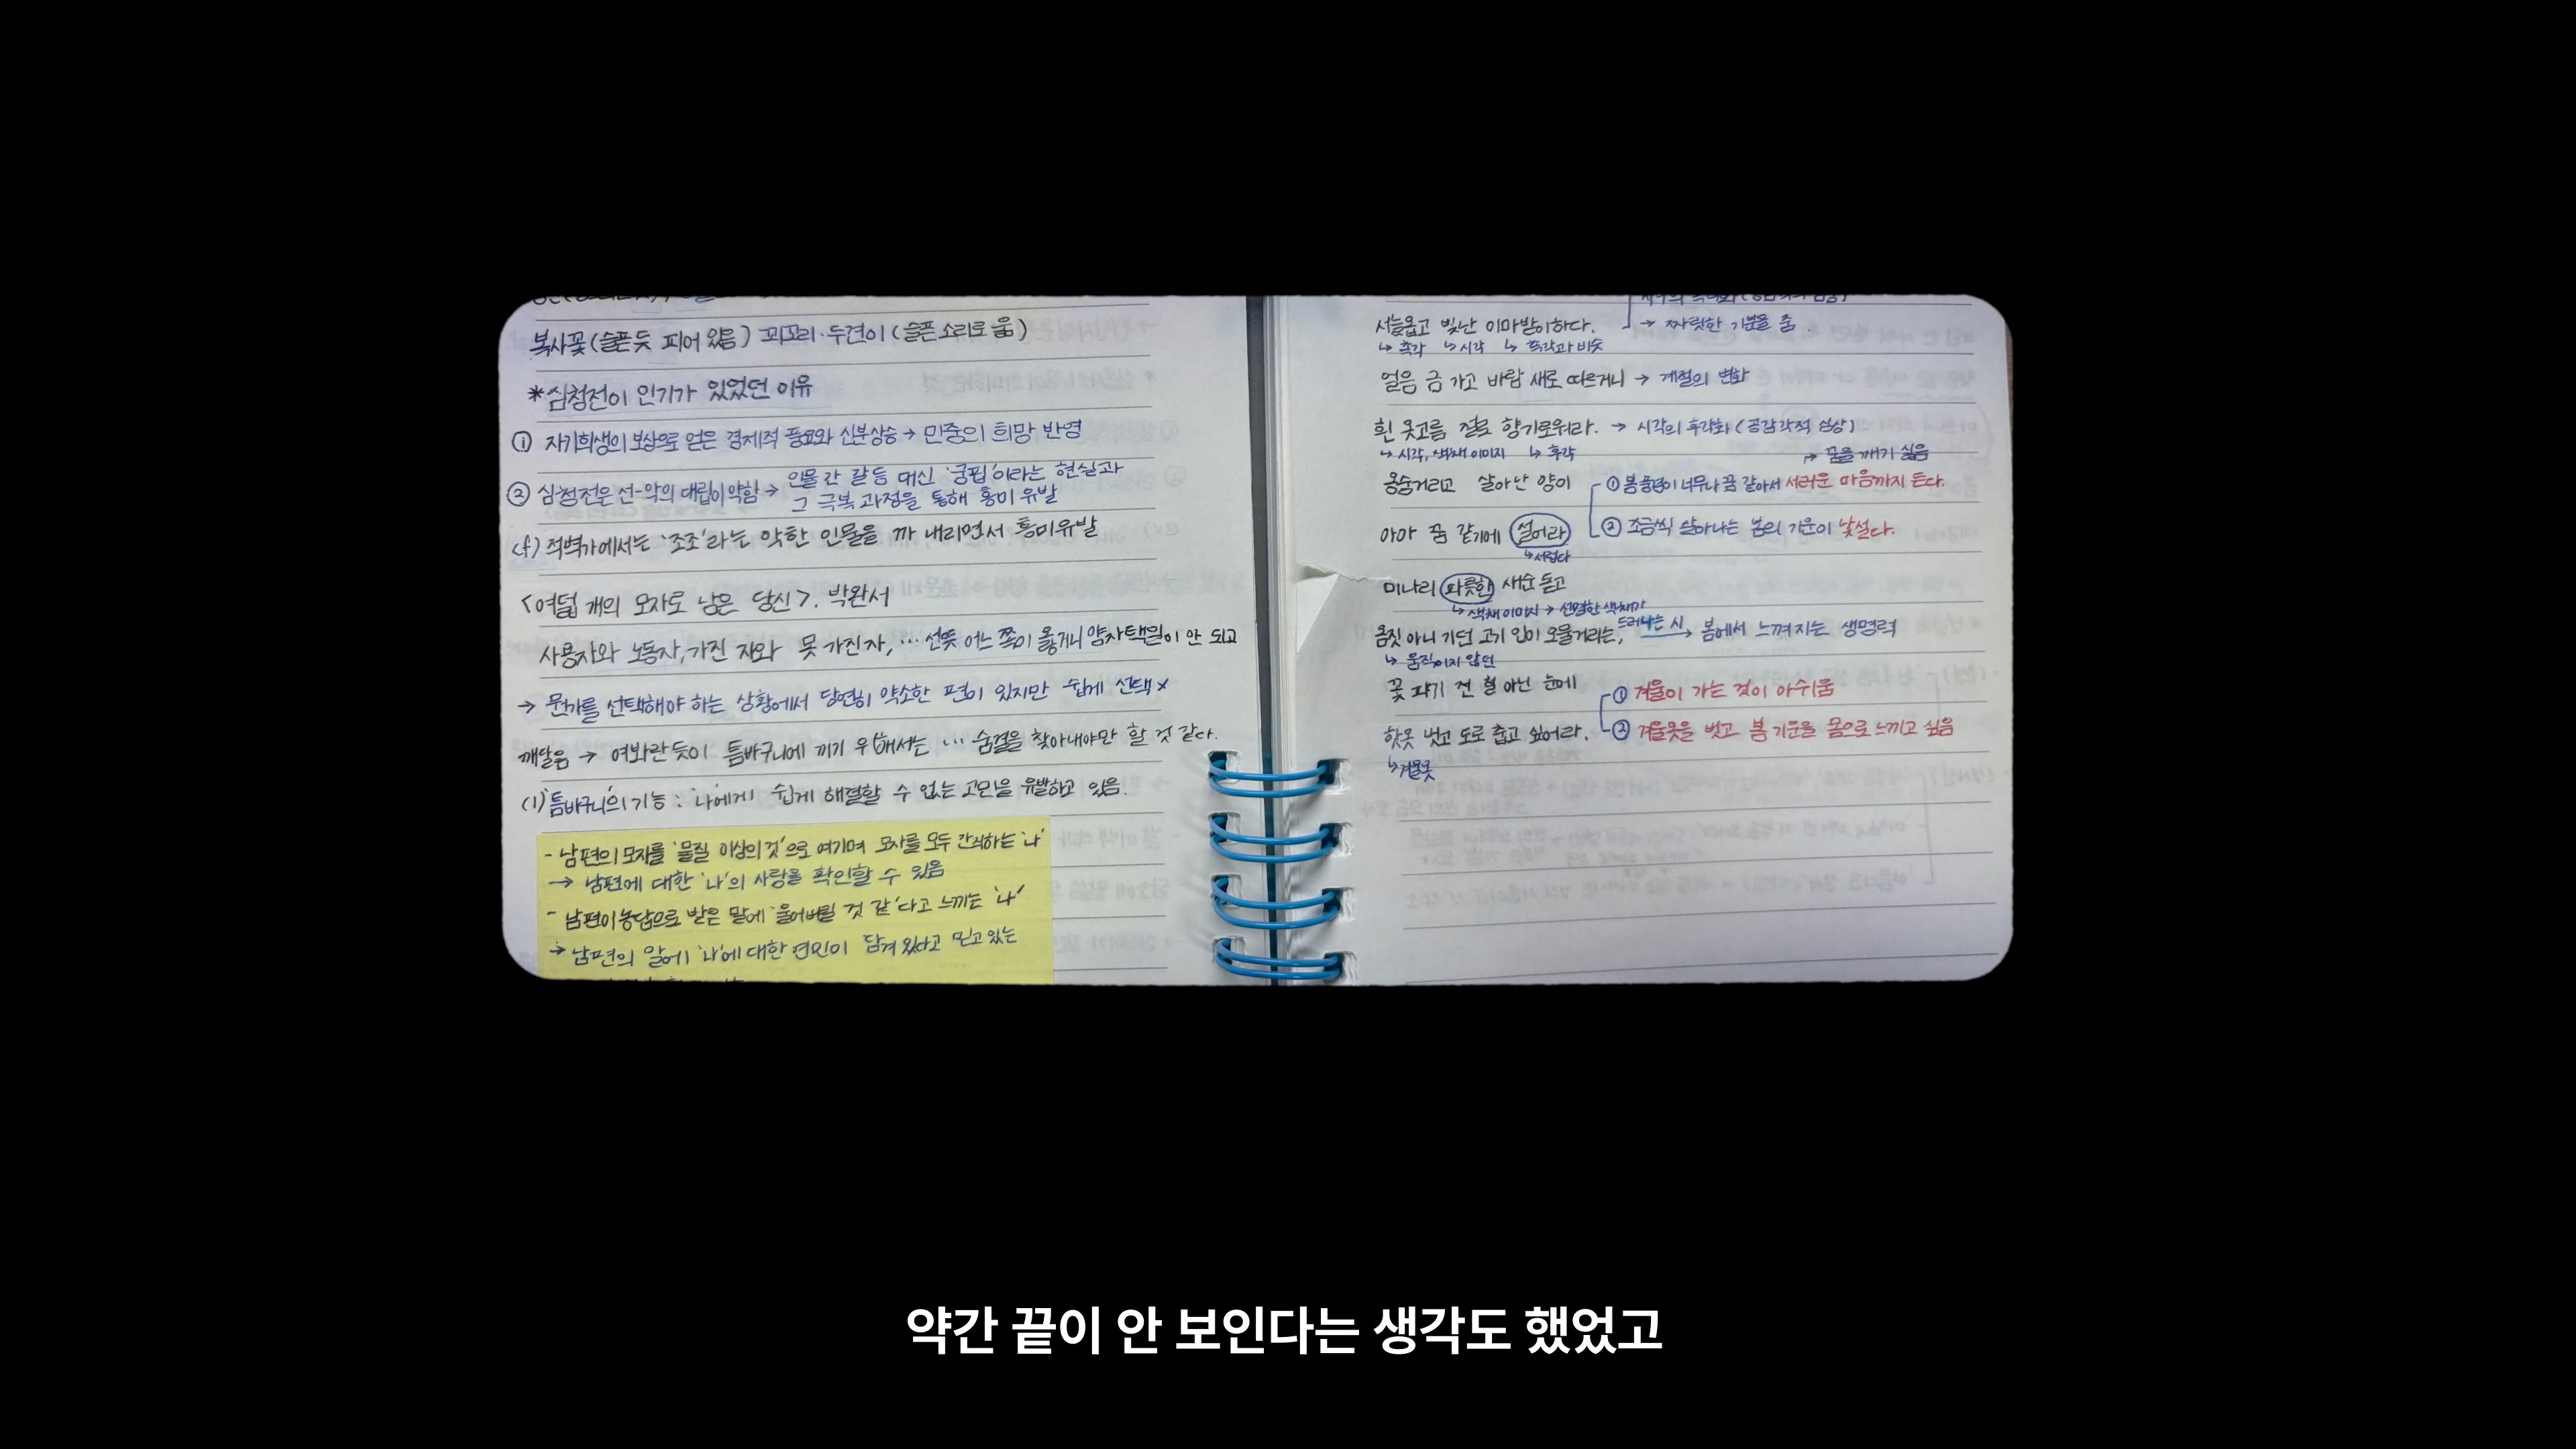 복사꽃(슬픈듯 피어 있음) 꾀꼬리·두견이(슬픈 소리로 욺)
*심청전이 인기가 있었던 이유
① 자기희생의 보상으로 얻은 경제적 풍요와 신분상승 → 민중의 희망 반영
② 심청전은 선-악의 대립이 약함 → 인물 간 갈등 대신 '궁핍'이라는 현실과
그 극복 과정을 통해 흥미 유발
cf) 적벽가에서는 '조조'라는 악한 인물을 까 내리면서 흥미유발
<여덟 개의 모자로 남은 당신>. 박완서
사용자와 노동자, 가진 자와 못 가진 자, … 선뜻 어느 쪽이 옳거니 양자택일이 안 되고
→ 뭔가를 선택해야 하는 상황에서 당연히 약소한 편이 있지만 쉽게 선택×
깨달음 → 여봐란듯이 틈바구니에 끼기 위해서는 … 숨결을 찾아내야만 할 것 같다.
(1) '틈바구니'의 기능 : '나'에게 쉽게 해결할 수 없는 고민을 유발하고 있음.
- 남편의 모자를 '물질 이상의 것'으로 여기며 모자를 모두 간직하는 '나'
→ 남편에 대한 '나'의 사랑을 확인할 수 있음
- 남편이 농담으로 받은 말에 '울어버릴 것 같'다고 느끼는 '나'
→ 남편의 말에 '나'에 대한 연민이 담겨 있다고 믿고 있는
서늘옵고 빛난 이마받이하다. → 짜릿한 기분을 줌.
↳ 촉각 ↳ 시각 ↳ 촉각과 비슷
얼음 금 가고 바람 새로 따르거니 → 계절의 변화
흰 옷고름 절로 향기로워라. → 시각의 후각화 (공감각적 심상)
↳ 시각, 색채 이미지 ↳ 후각
→ 꿈을 깨기 싫음
옹숭거리고 살아난 양이 ① 봄 풍경이 너무나 꿈 같아서 서러운 마음까지 든다.
아아 꿈 같기에 설어라 ② 조금씩 살아나는 봄의 기운이 낯설다.
↳ 서럽다
미나리 파릇한 새순 돋고
↳ 색채 이미지 → 선명한 색채가
드러나는 시
옴짓 아니 기던 고기 입이 오물거리는, → 봄에서 느껴지는 생명력
↳ 움직이지 않던
꽃 피기 전 철 아닌 눈에 ① 겨울이 가는 것이 아쉬움
핫옷 벗고 도로 춥고 싶어라. ② 겨울옷을 벗고 봄 기운을 몸으로 느끼고 싶음
↳ 겨울옷
약간 끝이 안 보인다는 생각도 했었고